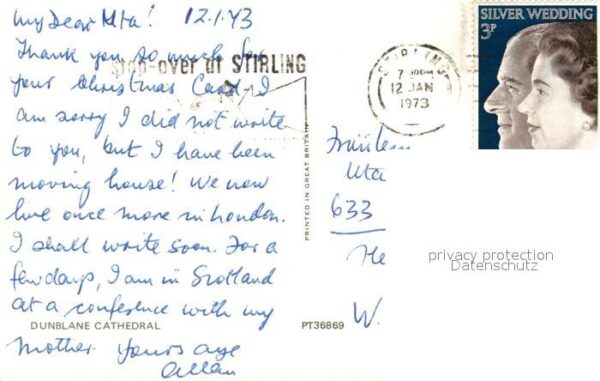 My Dear Uta! 12.1.73
Thank you so much for
your Christmas Card. I
am sorry I did not write
to you, but I have been
moving house! We now
live once more in London.
I shall write soon. For a
few days, I am in Scotland
at a conference with my
mother. Yours aye
Allan
DUNBLANE CATHEDRAL
PT36869
Stop-over at STIRLING
PRINTED IN GREAT BRITAIN
STIRLING
12 JAN
1973
SILVER WEDDING
3P
Fräulein
Uta
633
We
W.
privacy protection
Datenschutz